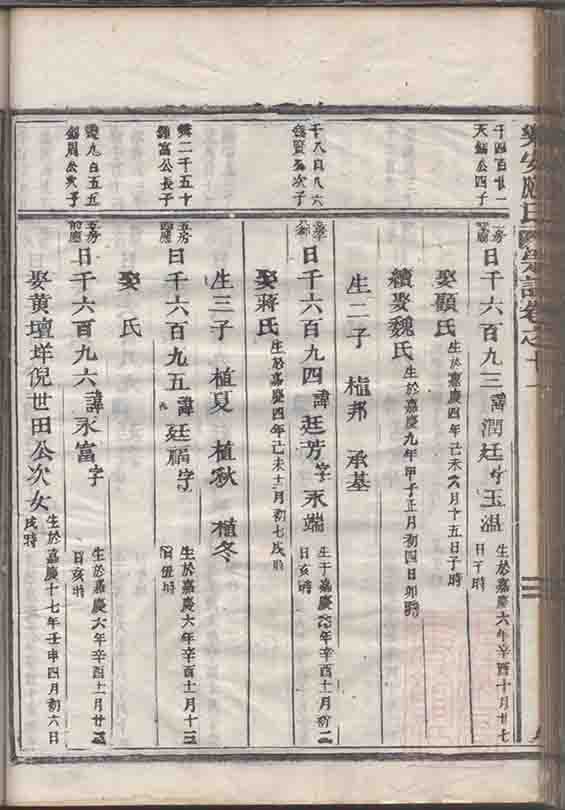 樂安應氏宗譜卷之十一
千四百廿一
天錫公四子
房
日千六百九三諱潤廷字玉溫生於嘉慶六年辛酉十月廿七
日子時
娶顧氏生於嘉慶四年己未六月十五日子時
續娶魏氏生於嘉慶九年甲子正月初四日卯時
生二子 植邦 承基
千八百八六
次子
日千六百九四諱廷芳字永端生于嘉慶六年辛酉十一月初二
日亥時
娶蔣氏生於嘉慶四年己未十一月初七戌時
生三子 植夏 植秋 植冬
二千五十
富公長子
房
日千六百九五諱廷福字生於嘉慶六年辛酉十一月十三
日丑時
娶 氏
九百五五
周公次子
房
日千六百九六諱永富字生於嘉慶六年辛酉十一月廿三
日亥時
娶黃壇垟倪世田公次女生於嘉慶十七年壬申四月初六日
戌時